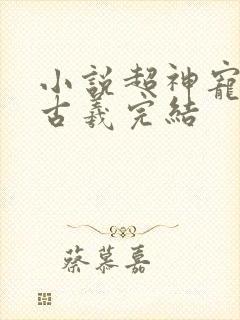 小說超神寵
古羲完結
蔡慕嘉